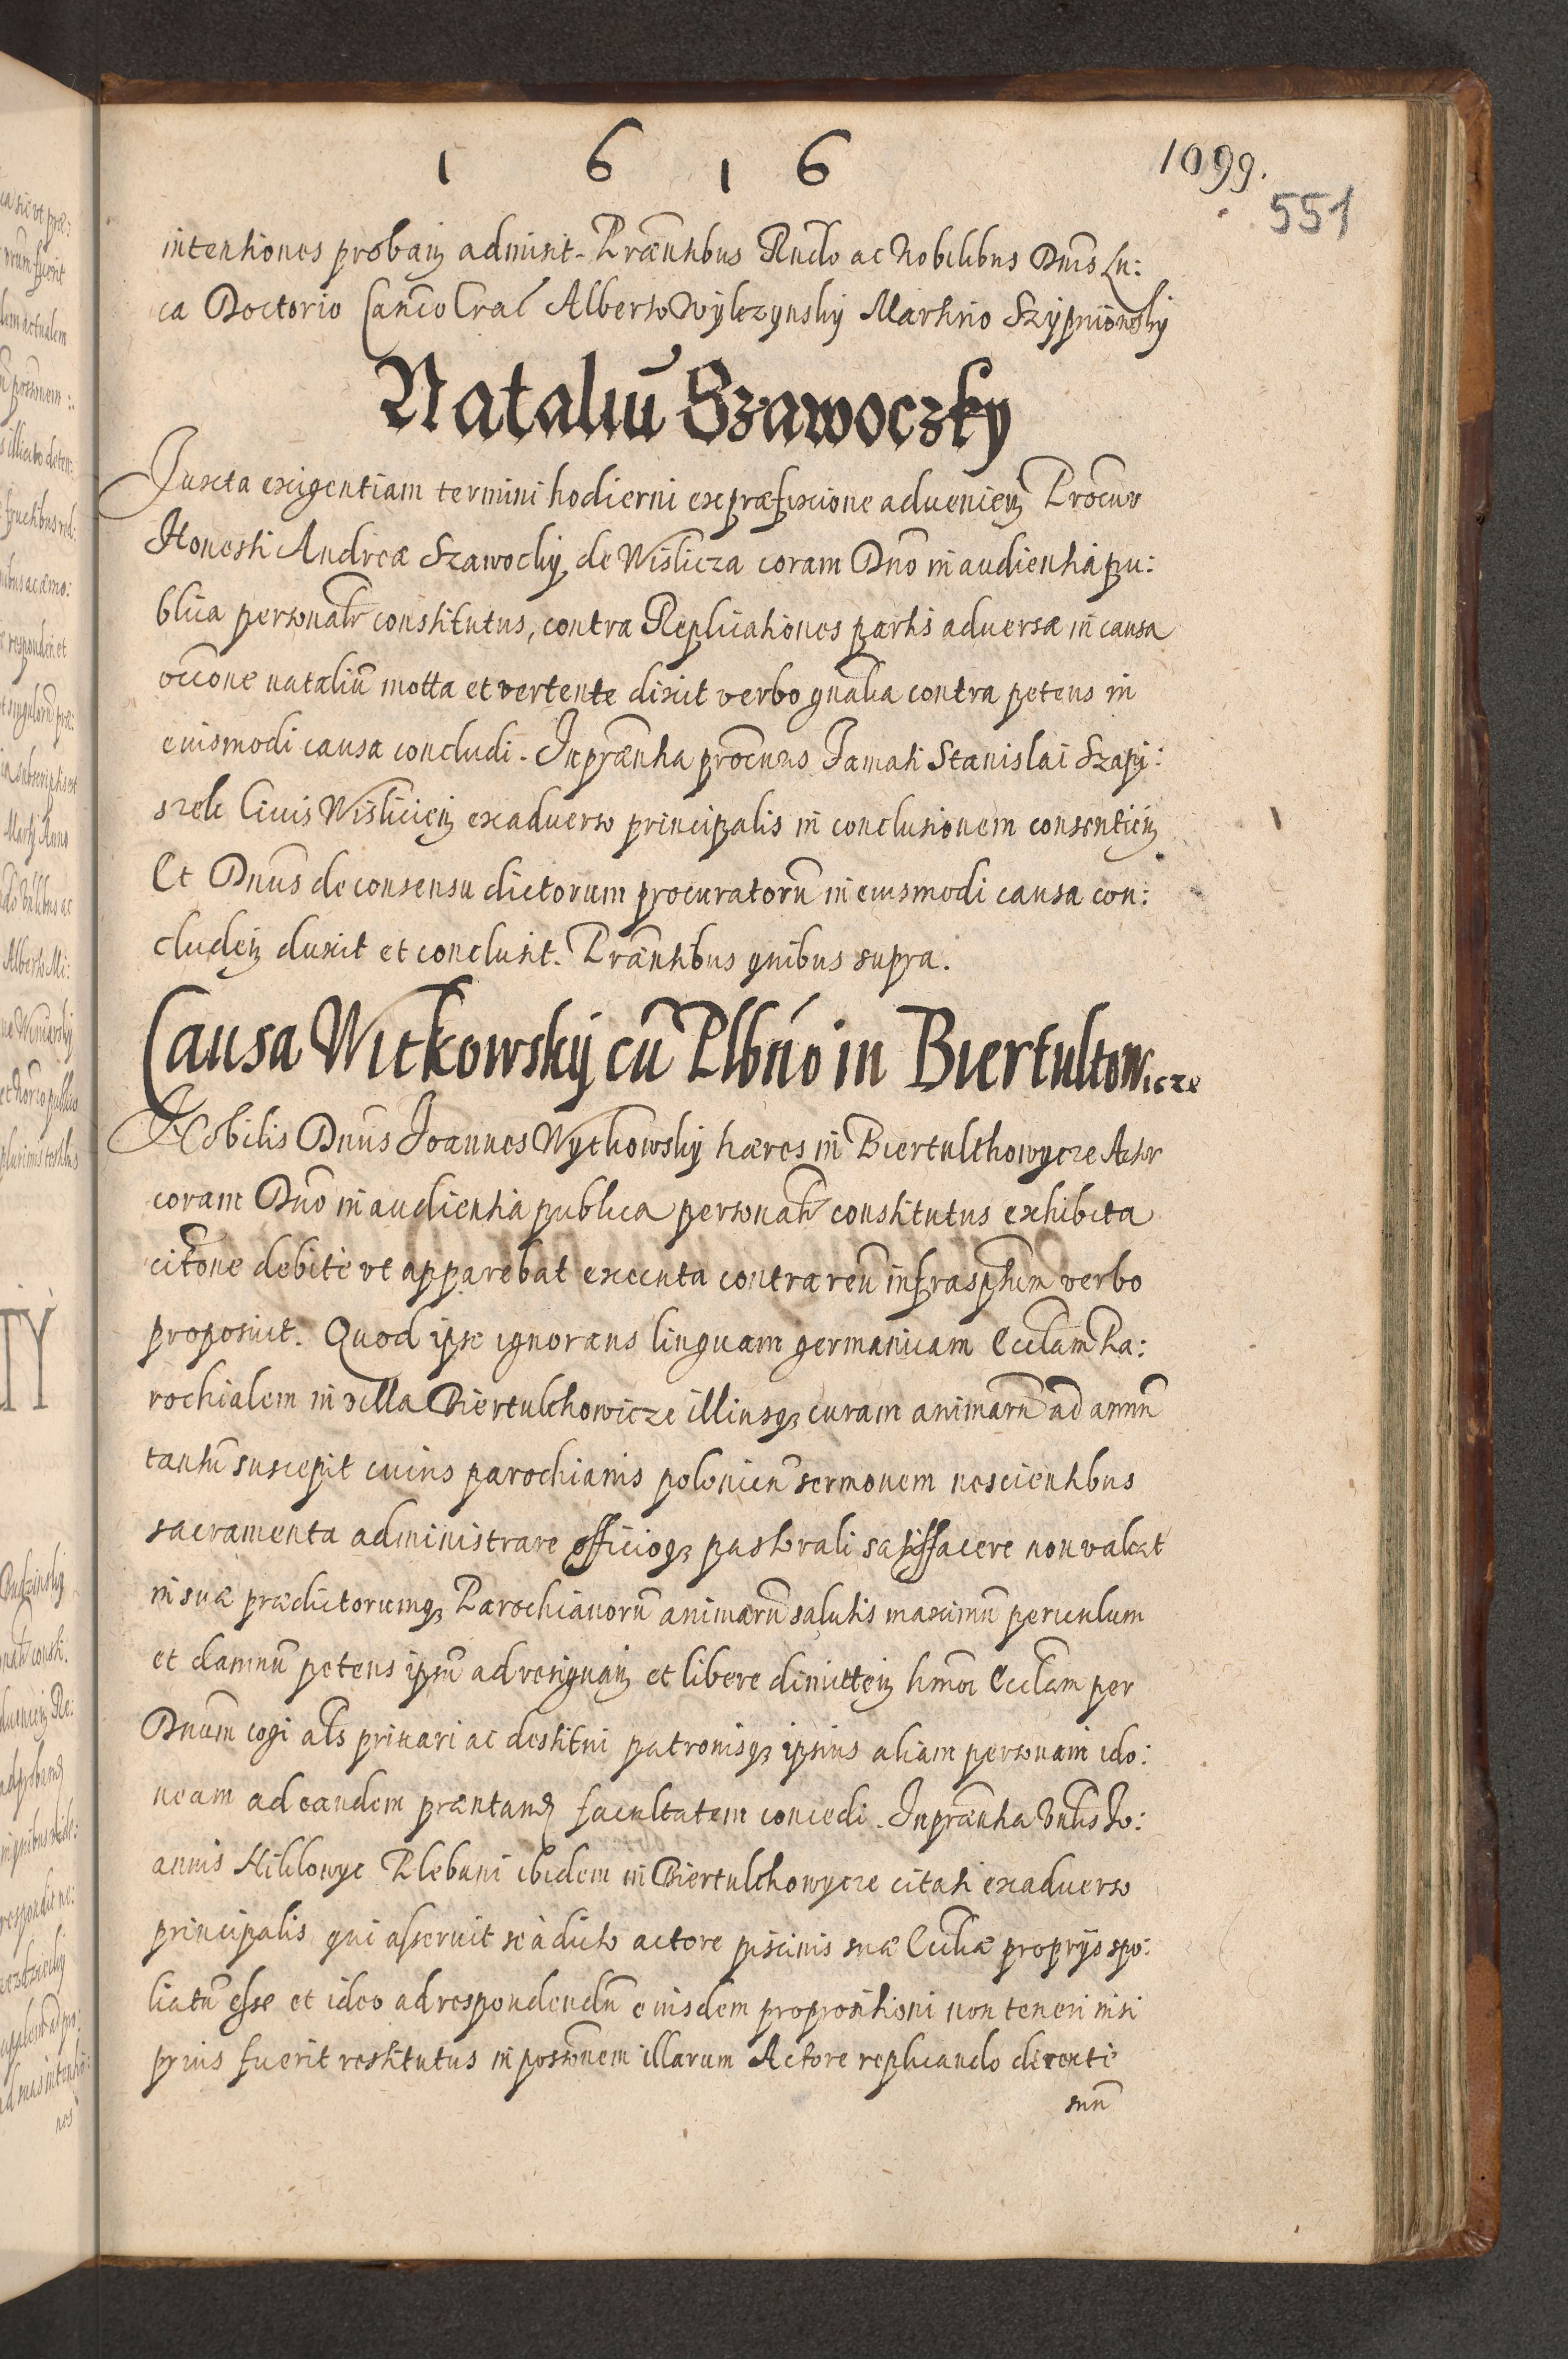 1 6 1 6
1099.
551
intentiones probanȝ admisit. Præntibus Rndo ac Nobilibus Dnis Lu:
ca Doctorio Canco Crac Alberto Wylczynsky Martino Szypniowsky
Nataliū Szawoczky
Juxta exigentiam termini hodierni ex præfixione aduenienȝ Procur
Honesti Andreæ Szawocky de Wislicza coram Dno in audientia pu:
blica personalr constitutus, contra Replicationes partis aduersæ in causa
occone nataliū motta et vertente dixit verbo gnalia contra petens in
euismodi causa concludi. In præntia procuris Famati Stanislai Szapi:
szek Ciuis Wisliciensȝ ex aduerso principalis in conclusionem consentienȝ
Et Dnus de consensu dictorum procuratorū in eiusmodi causa con:
cludenȝ duxit et conclusit. Præntibus quibus supra.
Causa Witkowskÿ cū Plbno in Biertultowicze
Nobilis Dnus Joannes Wytkowsky hæres in Biertulthowycze Actor
coram Dno in audientia publica personalr constitutus exhibita
citone debite vt apparebat executa contra reū infrascptum verbo
proposuit. Quod ipse ignorans linguam germanicam Ecclam Pa:
rochialem in villa Biertulthowicze illiusqȝ curam animarū ad annū
tantū suscepit cuius parochianis polonicū sermonem nescientibus
sacramenta administrare officioqȝ pastorali satisfacere non valeat
in suæ prædictorumqȝ Parochianorū animarū salutis maximū periculum
et damnū petens ipsū ad resignanȝ et libere dimittenȝ hmoi Ecclam per
Dnum cogi als priuari ac destitui patronisqȝ ipsius aliam personam ido:
neam ad eandem præntand facultatem concedi. In præntia Vnlis Jo:
annis Hiklowyc Plebani ibidem in Biertulthowycze citati ex aduerso
principalis qui asseruit se à dicto actore piscinis suæ Eccliæ proprys spo:
liatū esse et ideo ad respondendū eiusdem propositioni non teneri nisi
prius fuerit restitutus in possonem illarum Actore replicando dicente
suū